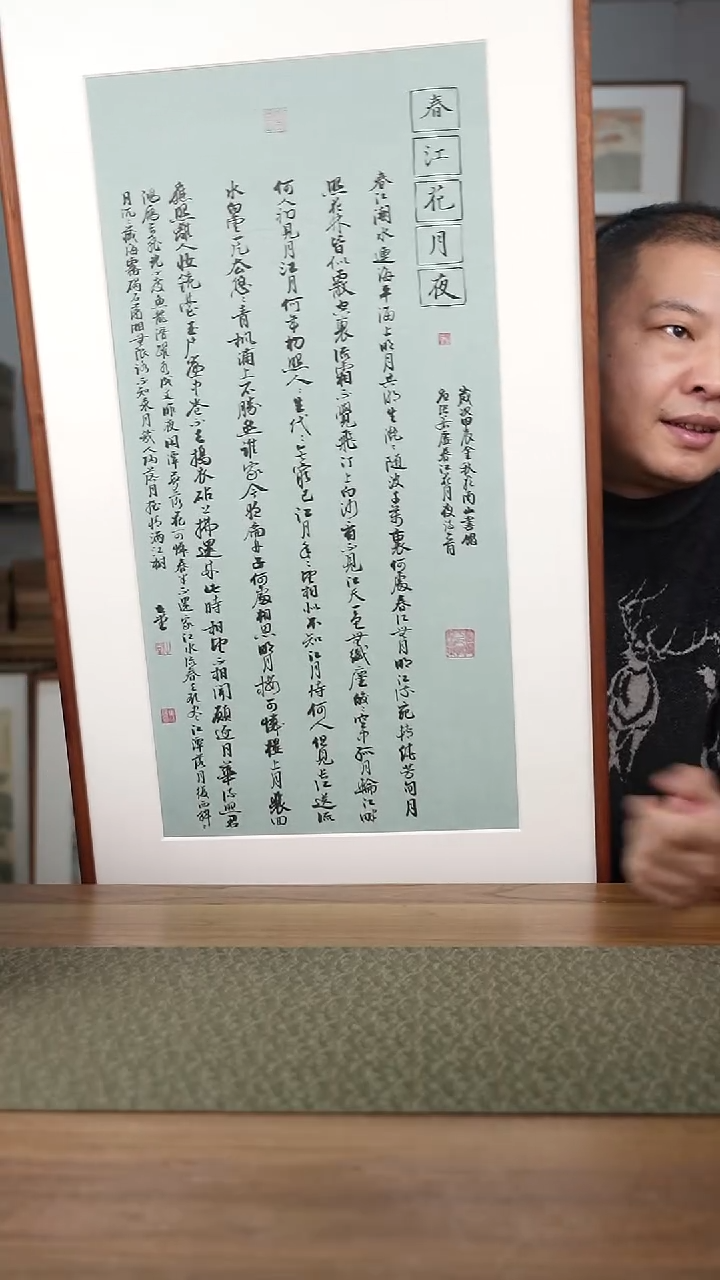 春江花月夜
歲次甲辰金秋於南山書館
唐張若虛春江花月夜詩一首
春江潮水連海平海上明月共潮生灩灩隨波千萬裏何處春江無月明江流宛轉繞芳甸月
照花林皆似霰空裏流霜不覺飛汀上白沙看不見江天一色無纖塵皎皎空中孤月輪江畔
何人初見月江月何年初照人人生代代無窮已江月年年望相似不知江月待何人但見長江送流
水白雲一片去悠悠青楓浦上不勝愁誰家今夜扁舟子何處相思明月樓可憐樓上月裴回
應照離人妝鏡臺玉戶簾中卷不去搗衣砧上拂還來此時相望不相聞願逐月華流照君
鴻雁長飛光不度魚龍潛躍水成文昨夜閑潭夢落花可憐春半不還家江水流春去欲盡江潭落月復西斜斜
月沉沉藏海霧碣石瀟湘無限路不知乘月幾人歸落月搖情滿江樹